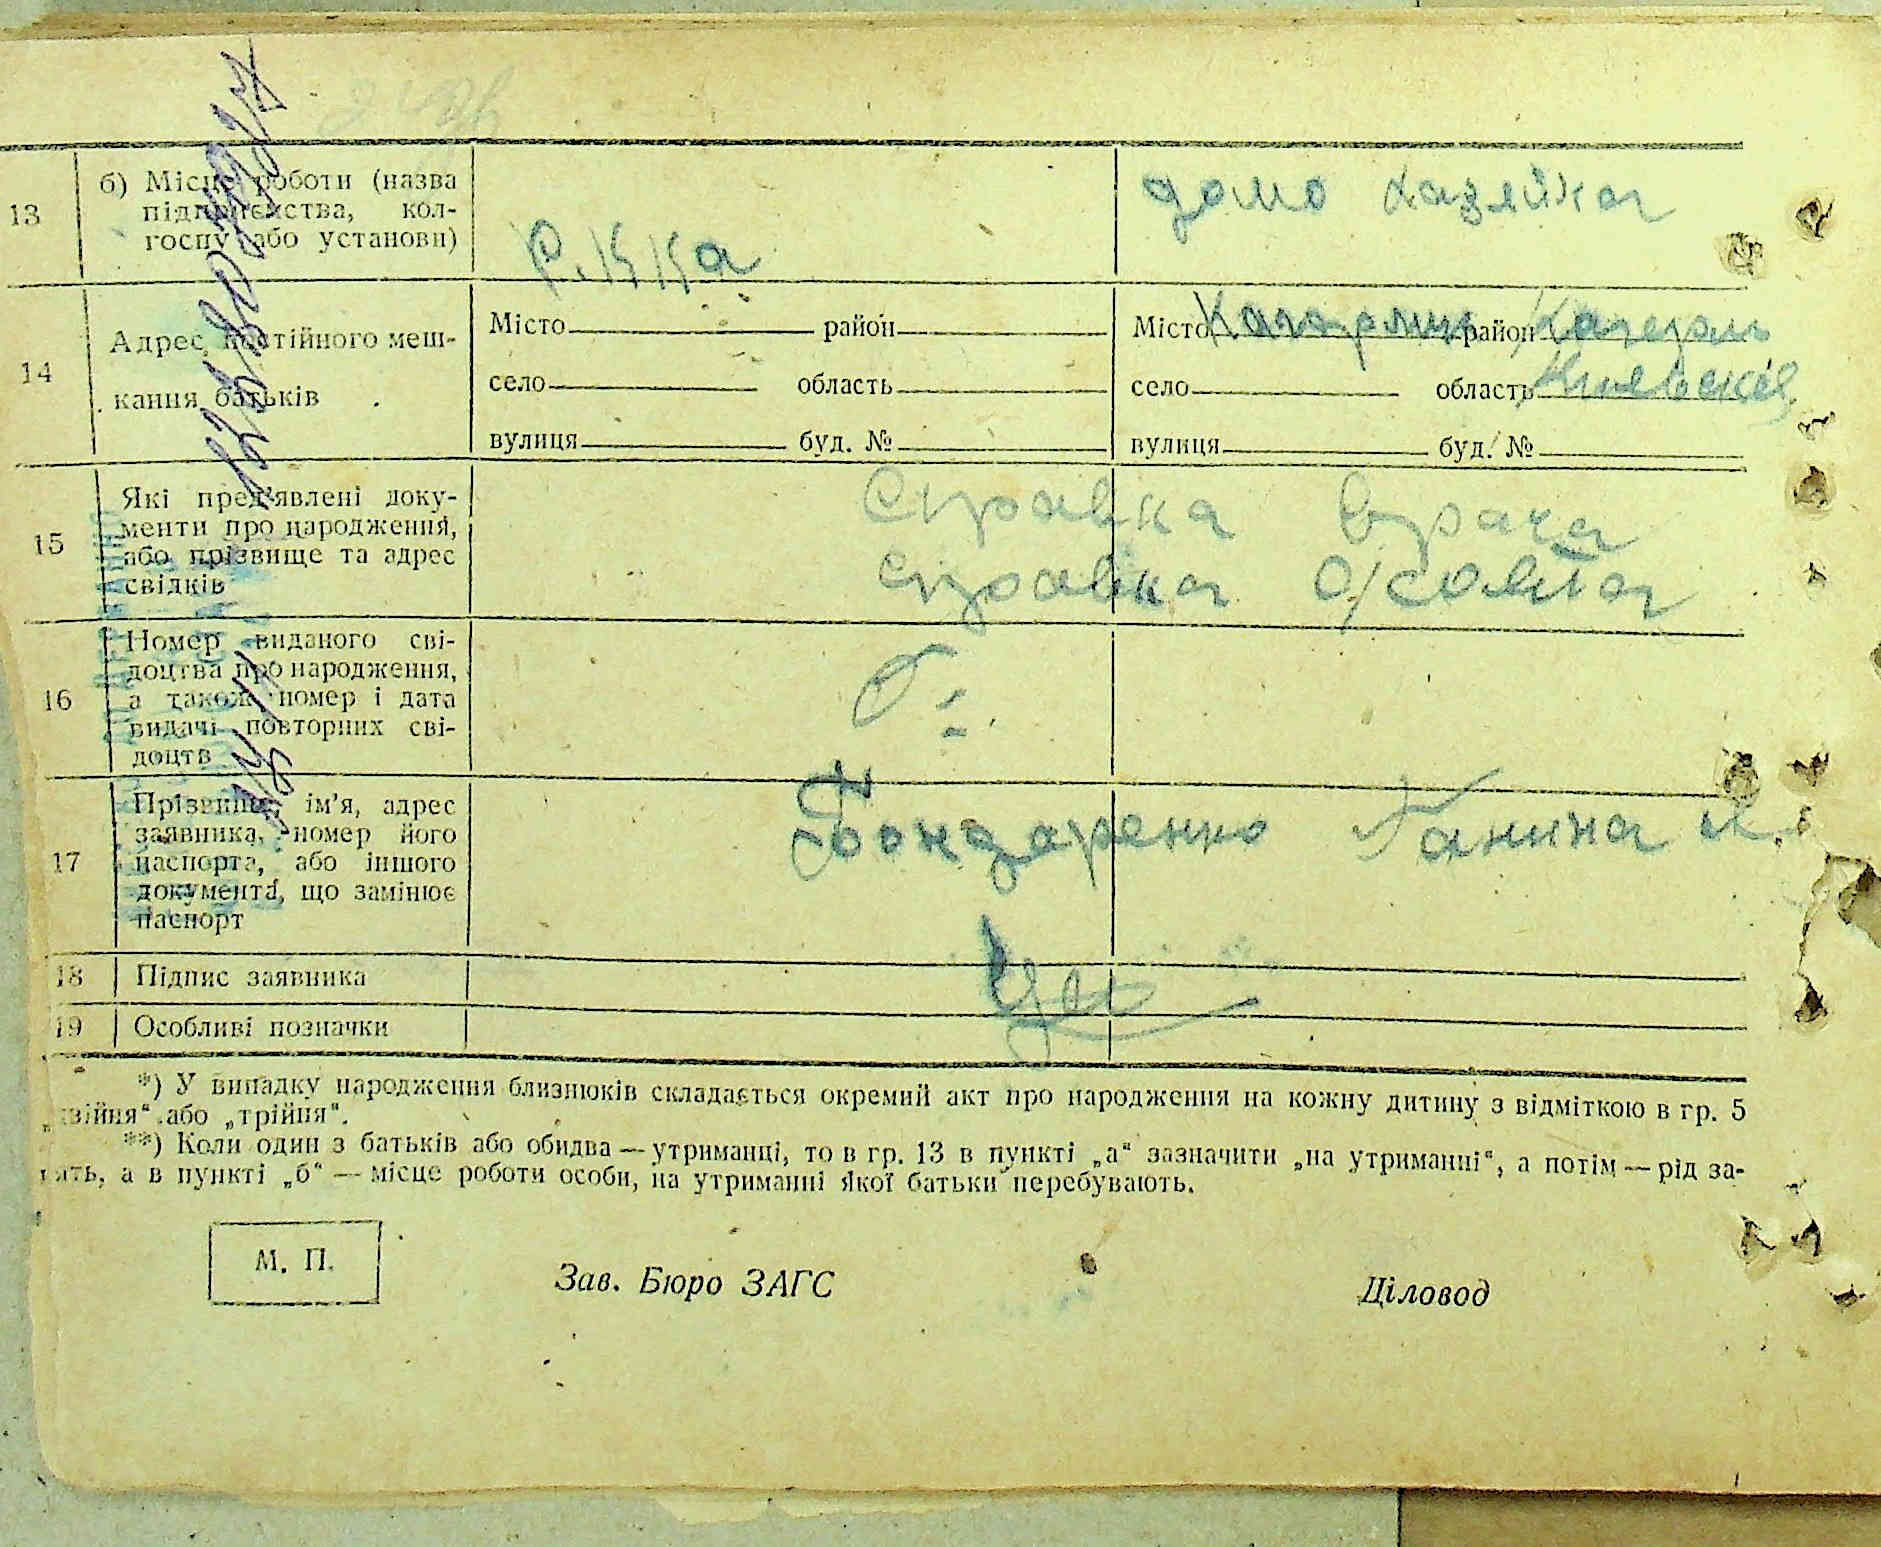 13 б) Місце роботи (назва
підприємства, кол-
госпу або установи)
Р.ККа
домо хазяйка
14 Адрес постійного меш-
кання батьків
Місто район
село область
вулиця буд. №
Місто Кагарлик район Кагарл
село область Киевской
вулиця буд. №
15 Які пред'явлені доку-
менти про народження,
або прізвище та адрес
свідків
Справка врача
справка с/совета
16 Номер виданого сві-
доцтва про народження,
а також номер і дата
видачі повторних сві-
доцтв
17 Прізвище, ім'я, адрес
заявника, номер його
паспорта, або іншого
документа, що замінює
паспорт
Бондаренко Ганина
18 Підпис заявника
19 Особливі позначки
*) У випадку народження близнюків складається окремий акт про народження на кожну дитину з відміткою в гр. 5
„двійня“ або „трійня“.
**) Коли один з батьків або обидва — утриманці, то в гр. 13 в пункті „а“ зазначити „на утриманні“, а потім — рід за-
нять, а в пункті „б“ — місце роботи особи, на утриманні якої батьки перебувають.
М. П.
Зав. Бюро ЗАГС
Діловод